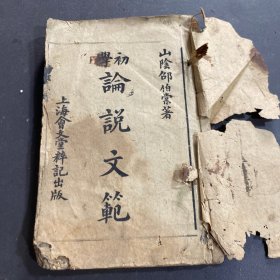 山陰邵伯棠著
初學論說文範
上海會文堂粹記出版